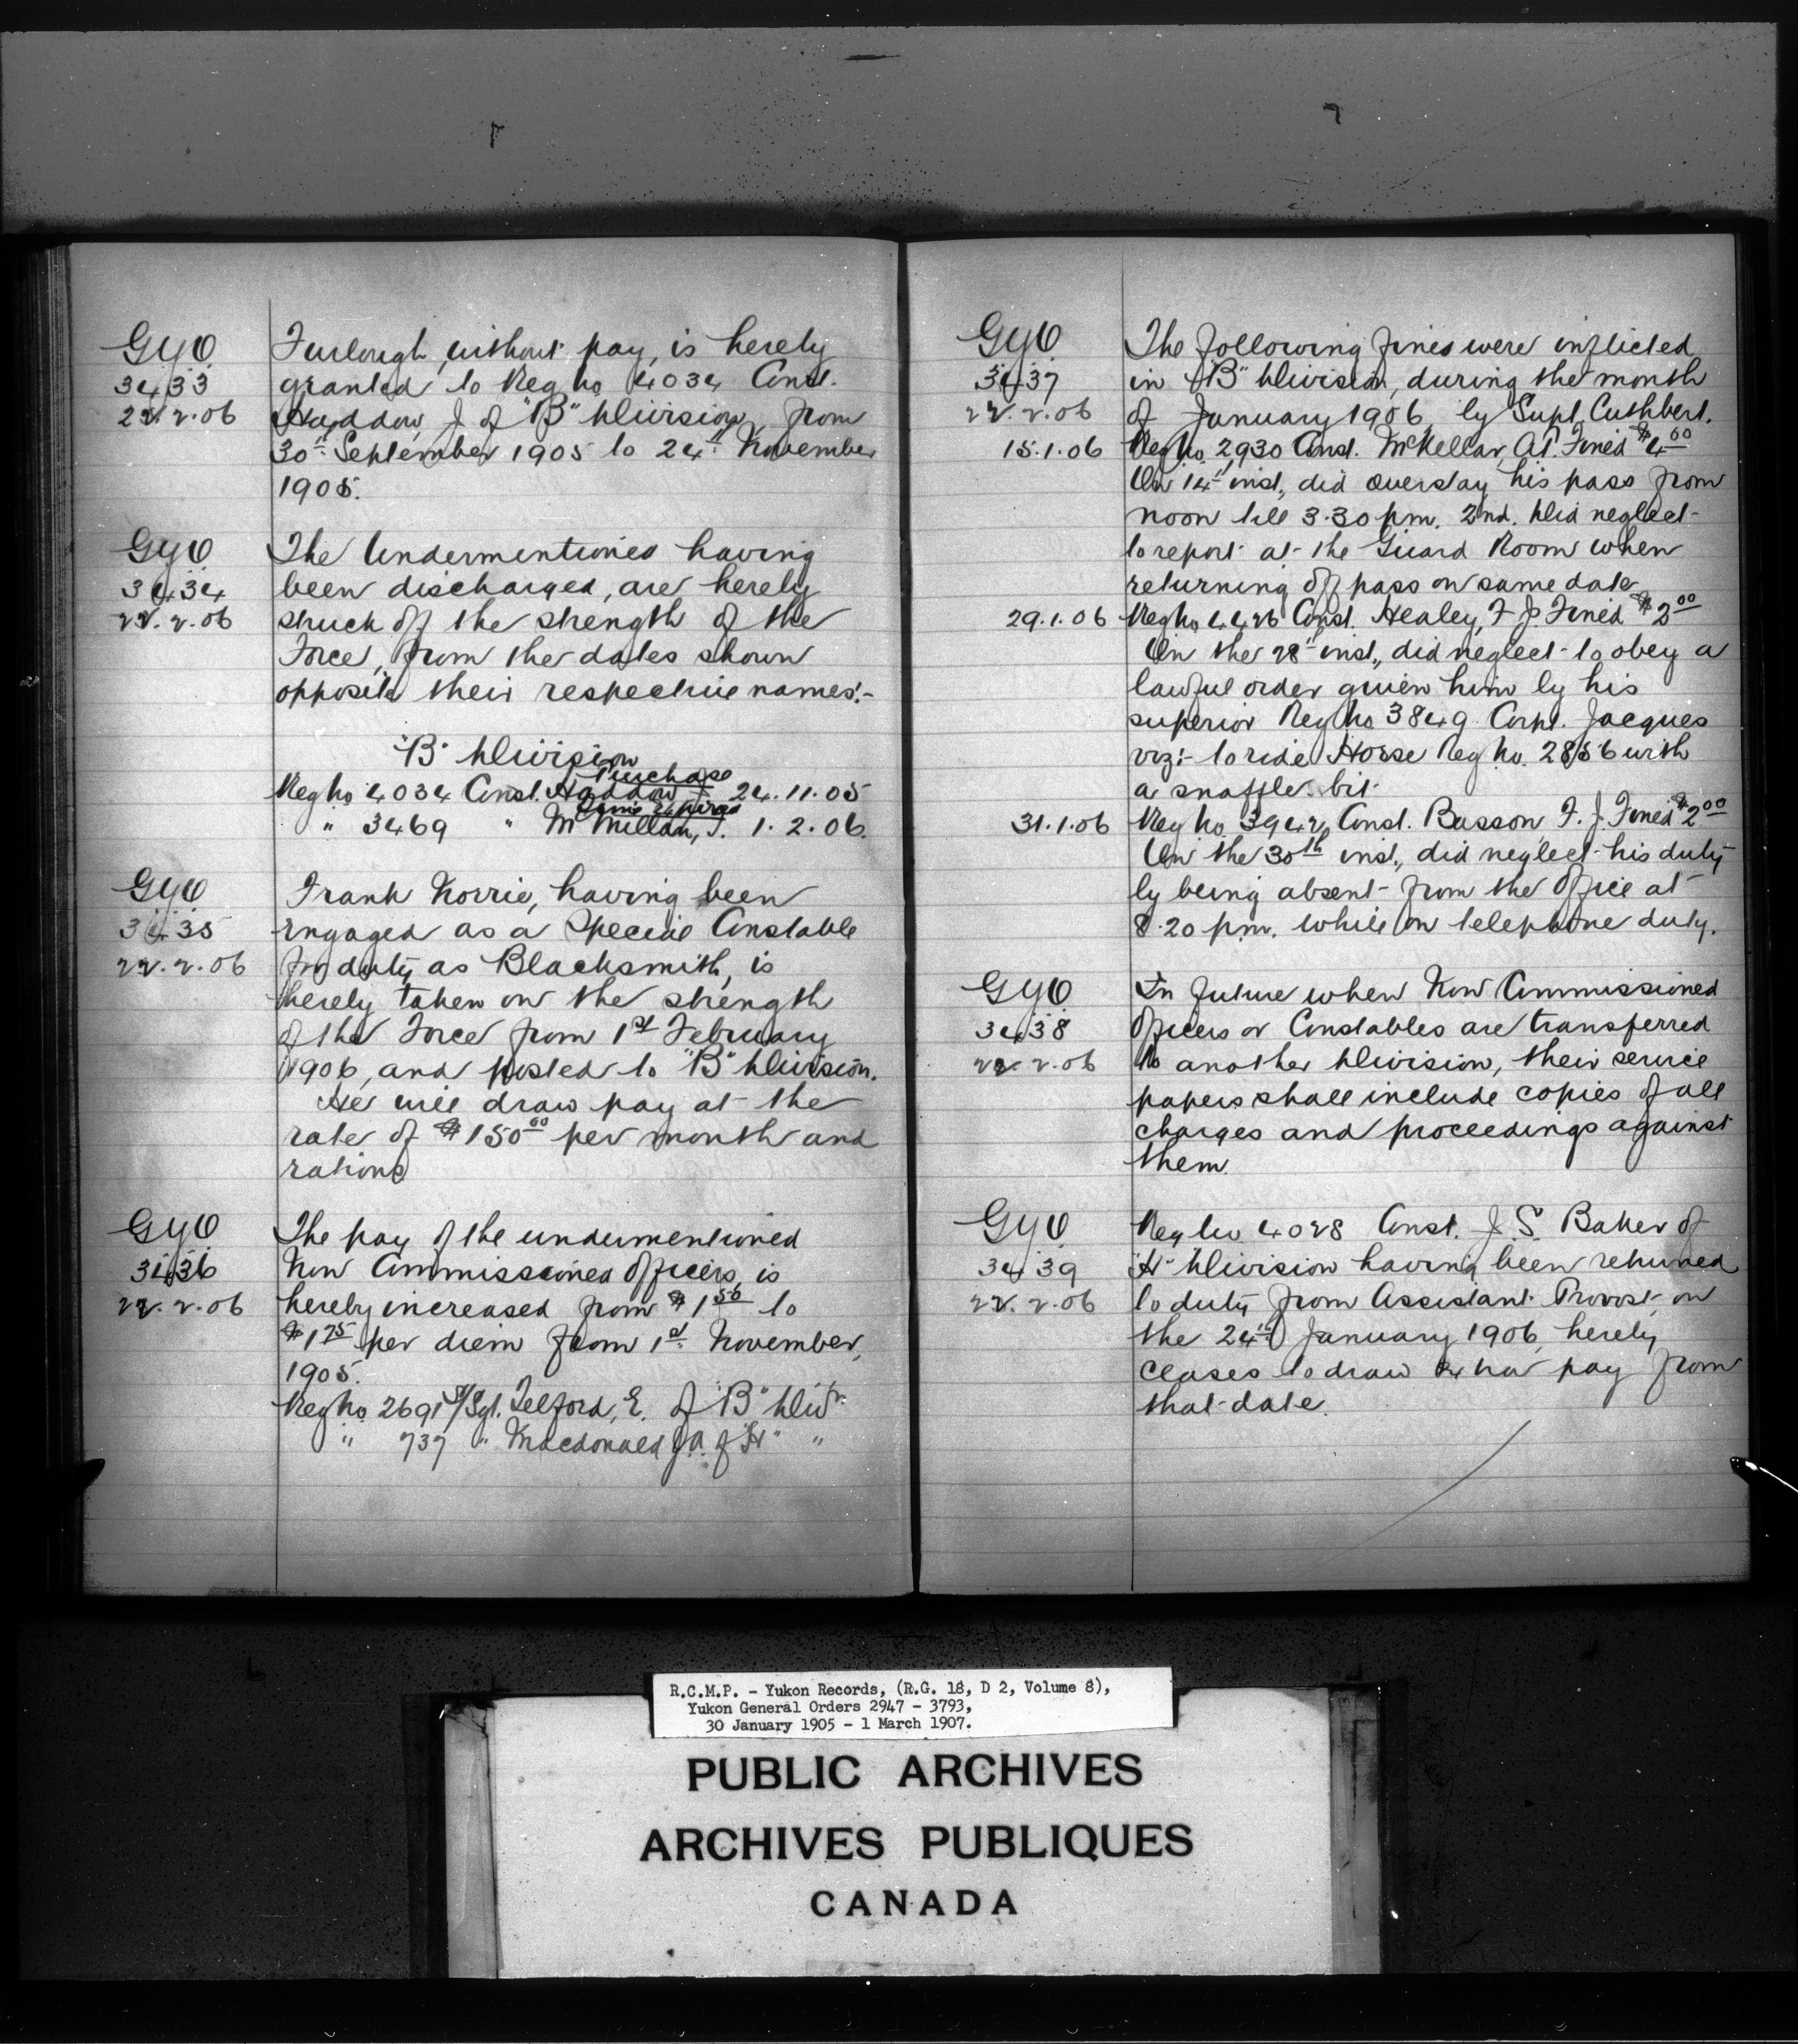 GYO
3433
22.2.06
Furlough, without pay, is hereby
granted to Reg No 4034 Const.
Haddow J. of "B" Division, from
30th September 1905 to 24th November
1905.
GYO
3434
22.2.06
The Undermentioned having
been discharged, are hereby
struck off the strength of the
Force, from the dates shown
opposite their respective names:-
"B" Division
Purchase
Reg No 4034 Const. Haddow J. 24.11.05
Time Expired
" 3469 " McMillan, J. 1.2.06.
GYO
3435
22.2.06
Frank Norrie, having been
engaged as a Special Constable
for duty as Blacksmith, is
hereby taken on the strength
of the Force from 1st February
1906, and posted to "B" Division.
He will draw pay at the
rate of $150 00 per month and
rations
GYO
3436
22.2.06
The pay of the undermentioned
Non Commissioned Officers, is
hereby increased from $1 50 to
$1 75 per diem from 1st November,
1905.
Reg No 2691 S/Sgt. Telford, E. of "B" Divn.
" 737 " Macdonald J.A. of "H" "
GYO
3437
22.2.06
The following fines were inflicted
in "B" Division, during the month
of January 1906, by Supt. Cuthbert.
15.1.06 Reg No 2930 Const. McKellar, A.P. Fined $4 00
On 14th inst., did overstay his pass from
noon till 3.30 pm. 2nd. Did neglect
to report at the Guard Room when
returning off pass on same date
29.1.06 Reg No 4426 Const. Healey, F J. Fined $2 00
On the 28th inst., did neglect to obey a
lawful order given him by his
superior Reg No 3849 Corpl. Jacques
viz:- to ride Horse Reg No. 2856 with
a snaffle bit.
31.1.06 Reg No 3942 Const. Basson, F. J. Fined $2 00
On the 30th inst., did neglect his duty
by being absent from the Office at
8.20 p.m. while on telephone duty.
GYO
3438
22.2.06
In future when Non Commissioned
Officers or Constables are transferred
to another Division, their service
papers shall include copies of all
charges and proceedings against
them.
GYO
3439
22.2.06
Reg No 4028 Const. J. S. Baker of
"H" Division having been returned
to duty from Assistant Provost, on
the 24th January 1906, hereby
ceases to draw extra pay from
that date.
R.C.M.P. - Yukon Records, (R.G. 18, D 2, Volume 8),
Yukon General Orders 2947 - 3793,
30 January 1905 - 1 March 1907.
PUBLIC ARCHIVES
ARCHIVES PUBLIQUES
CANADA